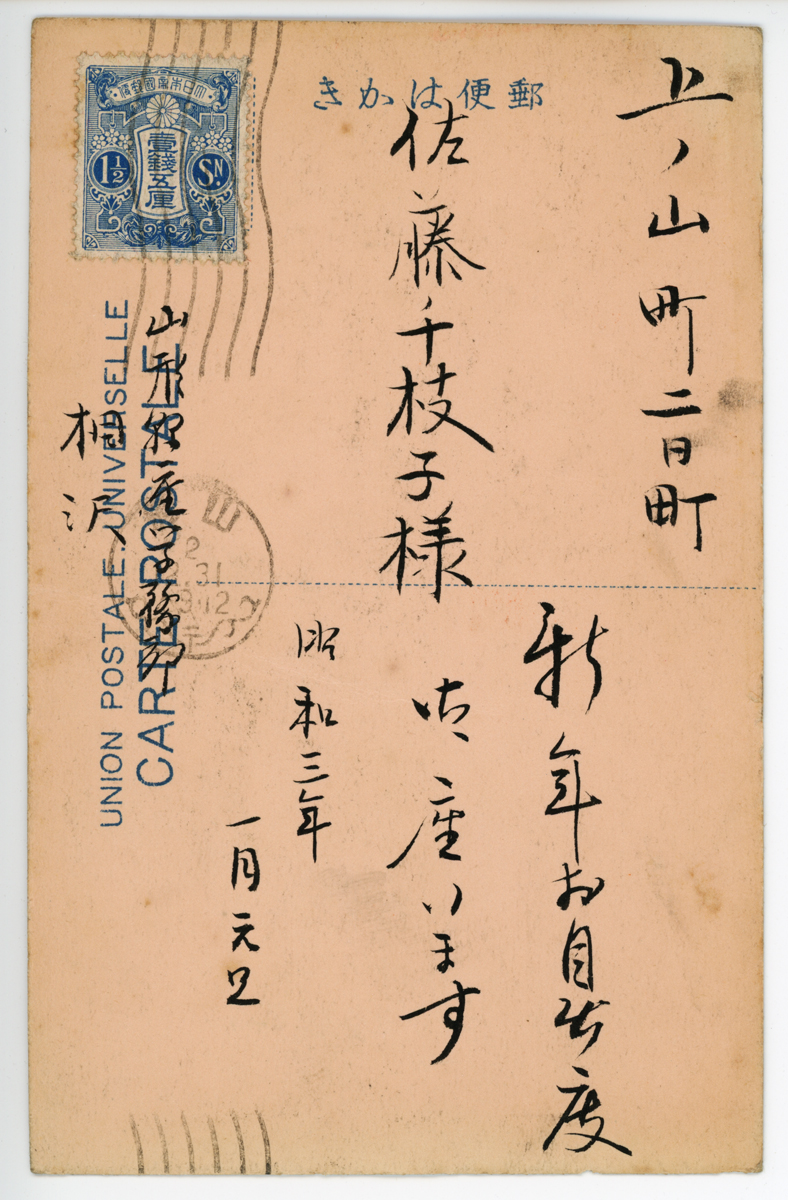 郵便はかき
上ノ山町二日町
佐藤千枝子様
新年お目出度
御座います
昭和三年
一月元旦
山形
柏沢
大日本帝國郵便
壹錢五厘
1½
SN.
UNION POSTALE UNIVERSELLE
CARTE POSTALE
山
2
31